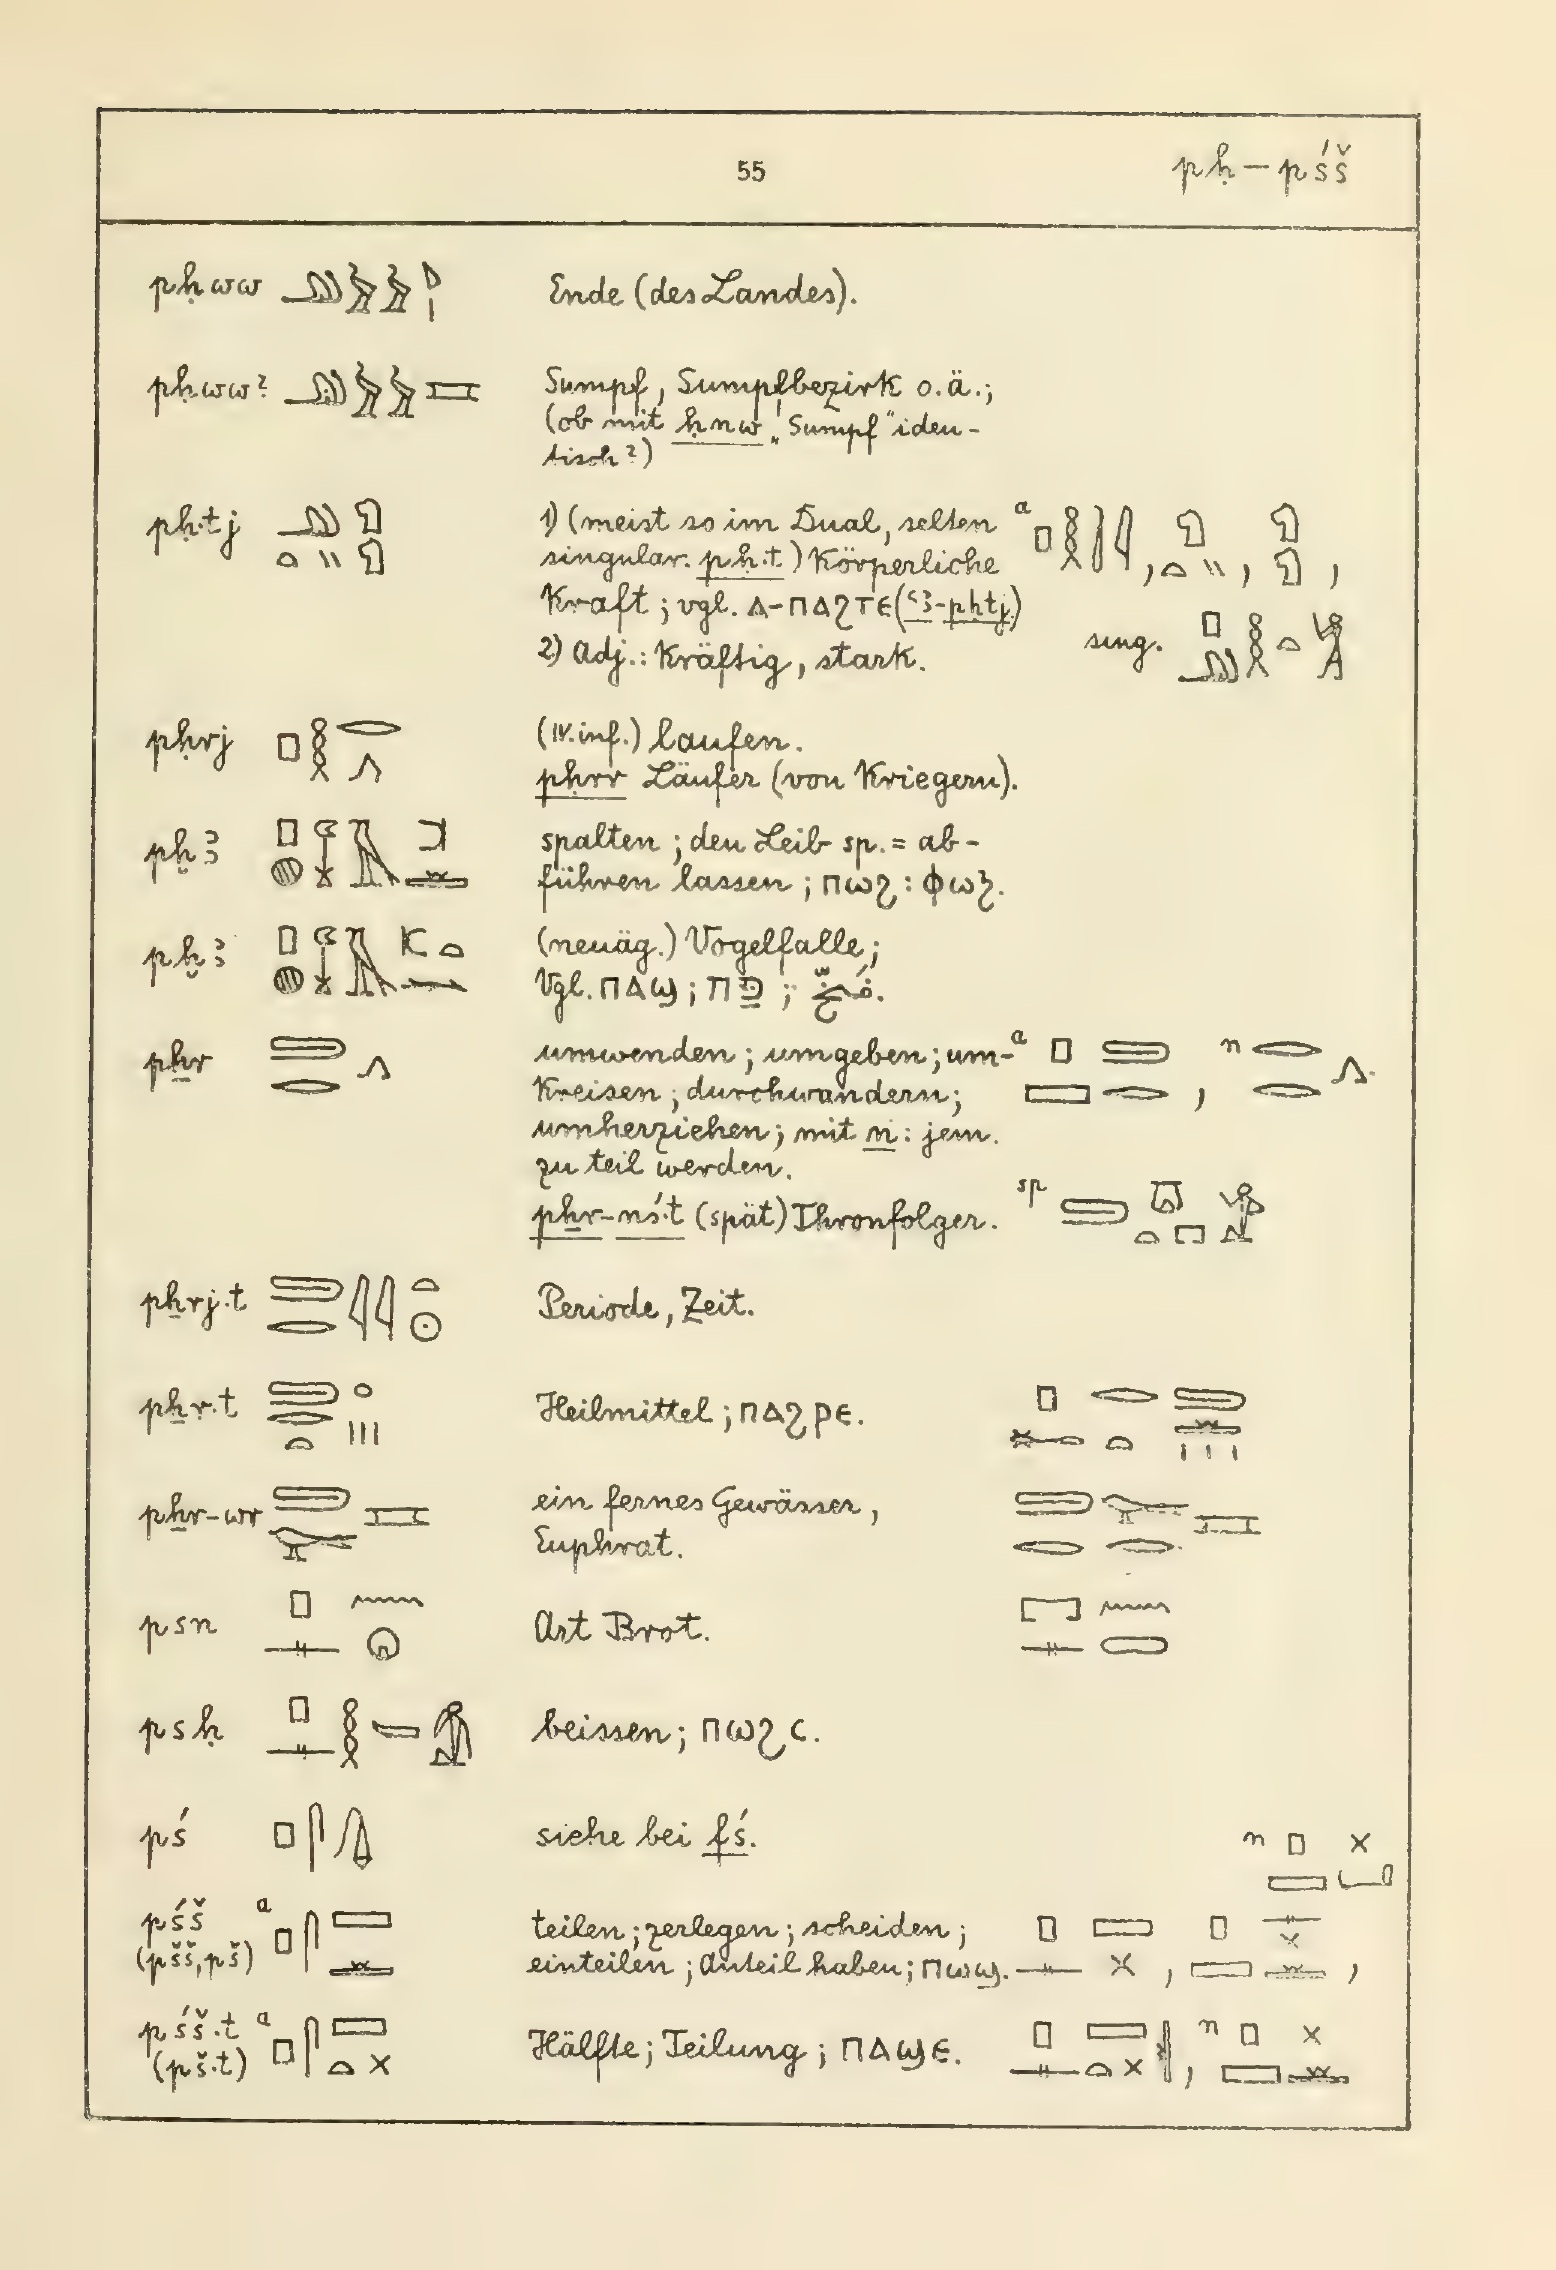 55
pḥ — pśš
pḥww Ende (des Landes).
pḥww? Sumpf, Sumpfbezirk o.ä.;
(ob mit ḥnw „Sumpf" iden-
tisch?)
pḥ·tj 1) (meist so im Dual, selten a
singular. pḥ·t) Körperliche
Kraft; vgl. ⲁ-ⲡⲁϩⲧⲉ (ꜥꜣ-pḥtj)
2) Adj.: Kräftig, stark. sing.
pḥrj (IV. inf.) laufen.
pḥrr Läufer (von Kriegern).
pḫꜣ spalten; den Leib sp. = ab-
führen lassen; ⲡⲱϩ : ⲫⲱϧ.
pḫꜣ (neuäg.) Vogelfalle;
Vgl. ⲡⲁϣ; פח; فَخّ.
pẖr umwenden; umgeben; um- a n
Kreisen; durchwandern;
umherziehen; mit n: jem.
zu teil werden.
pẖr-nś·t (spät) Thronfolger. sp
pẖrj·t Periode, Zeit.
pẖr·t Heilmittel; ⲡⲁϩⲣⲉ.
pẖr-wr ein fernes Gewässer,
Euphrat.
psn Art Brot.
psḥ beissen; ⲡⲱϩⲥ.
pś siehe bei fś. n
pśš a teilen; zerlegen; scheiden;
(pšš, pš) einteilen; Anteil haben; ⲡⲱϣ.
pśš·t a Hälfte; Teilung; ⲡⲁϣⲉ. n
(pš·t)